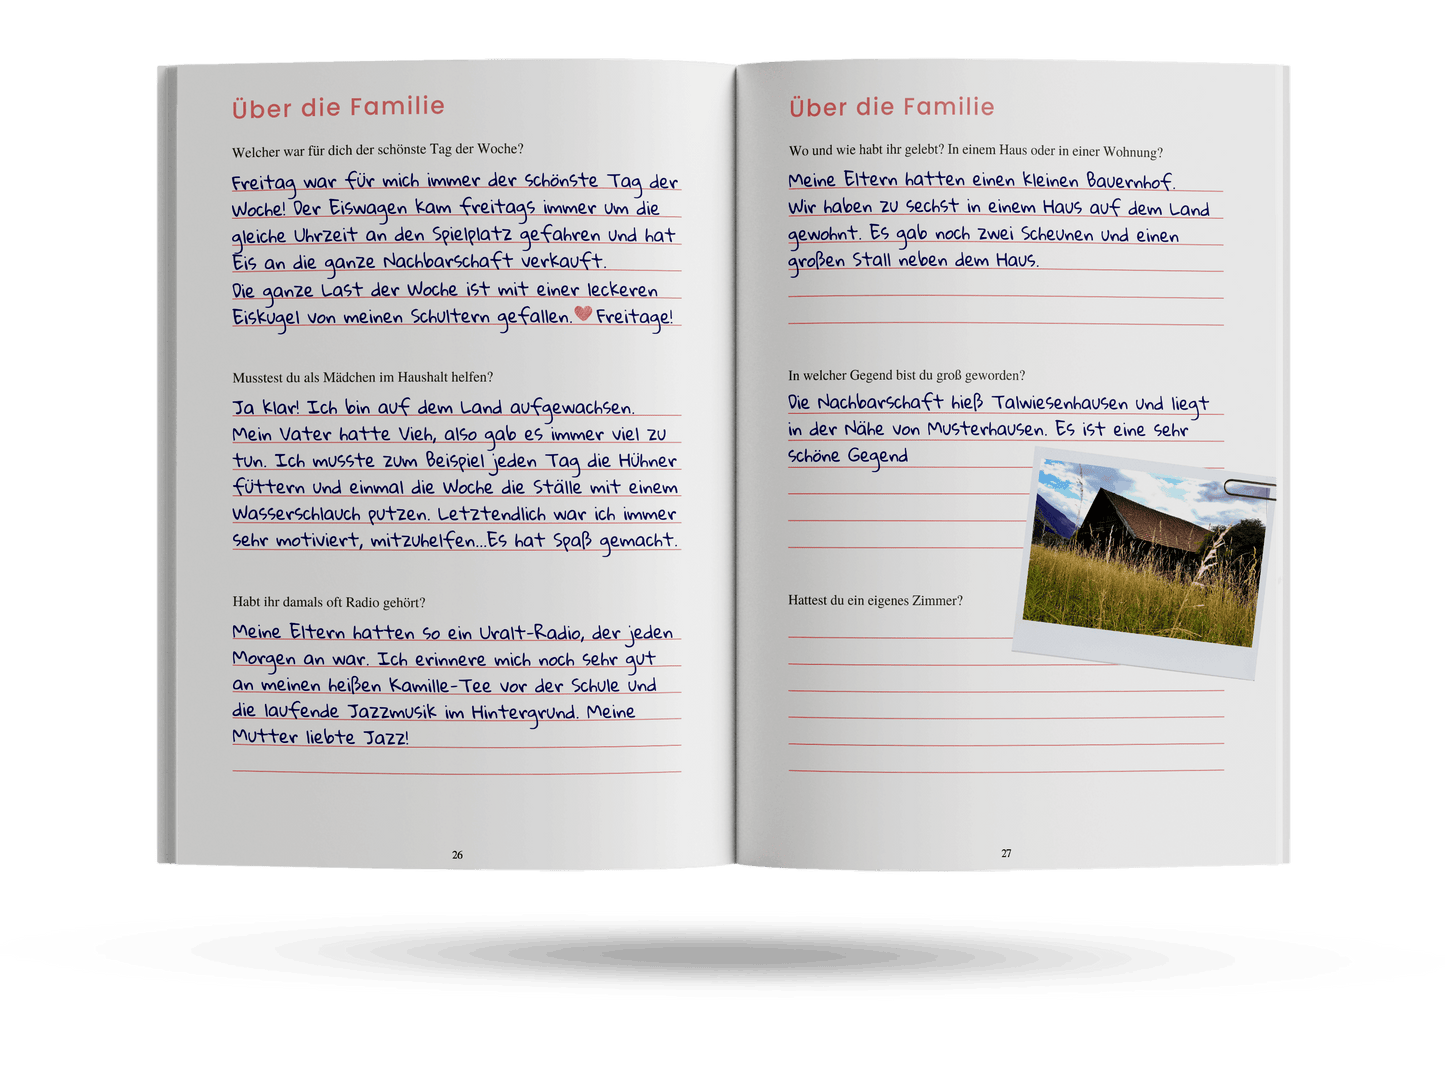 Über die Familie
Welcher war für dich der schönste Tag der Woche?
Freitag war für mich immer der schönste Tag der
Woche! Der Eiswagen kam freitags immer um die
gleiche Uhrzeit an den Spielplatz gefahren und hat
Eis an die ganze Nachbarschaft verkauft.
Die ganze Last der Woche ist mit einer leckeren
Eiskugel von meinen Schultern gefallen.❤Freitage!
Musstest du als Mädchen im Haushalt helfen?
Ja klar! Ich bin auf dem Land aufgewachsen.
Mein Vater hatte Vieh, also gab es immer viel zu
tun. Ich musste zum Beispiel jeden Tag die Hühner
füttern und einmal die Woche die Ställe mit einem
Wasserschlauch putzen. Letztendlich war ich immer
sehr motiviert, mitzuhelfen...Es hat Spaß gemacht.
Habt ihr damals oft Radio gehört?
Meine Eltern hatten so ein Uralt-Radio, der jeden
Morgen an war. Ich erinnere mich noch sehr gut
an meinen heißen Kamille-Tee vor der Schule und
die laufende Jazzmusik im Hintergrund. Meine
Mutter liebte Jazz!
26
Über die Familie
Wo und wie habt ihr gelebt? In einem Haus oder in einer Wohnung?
Meine Eltern hatten einen kleinen Bauernhof.
Wir haben zu sechst in einem Haus auf dem Land
gewohnt. Es gab noch zwei Scheunen und einen
großen Stall neben dem Haus.
In welcher Gegend bist du groß geworden?
Die Nachbarschaft hieß Talwiesenhausen und liegt
in der Nähe von Musterhausen. Es ist eine sehr
schöne Gegend
Hattest du ein eigenes Zimmer?
27